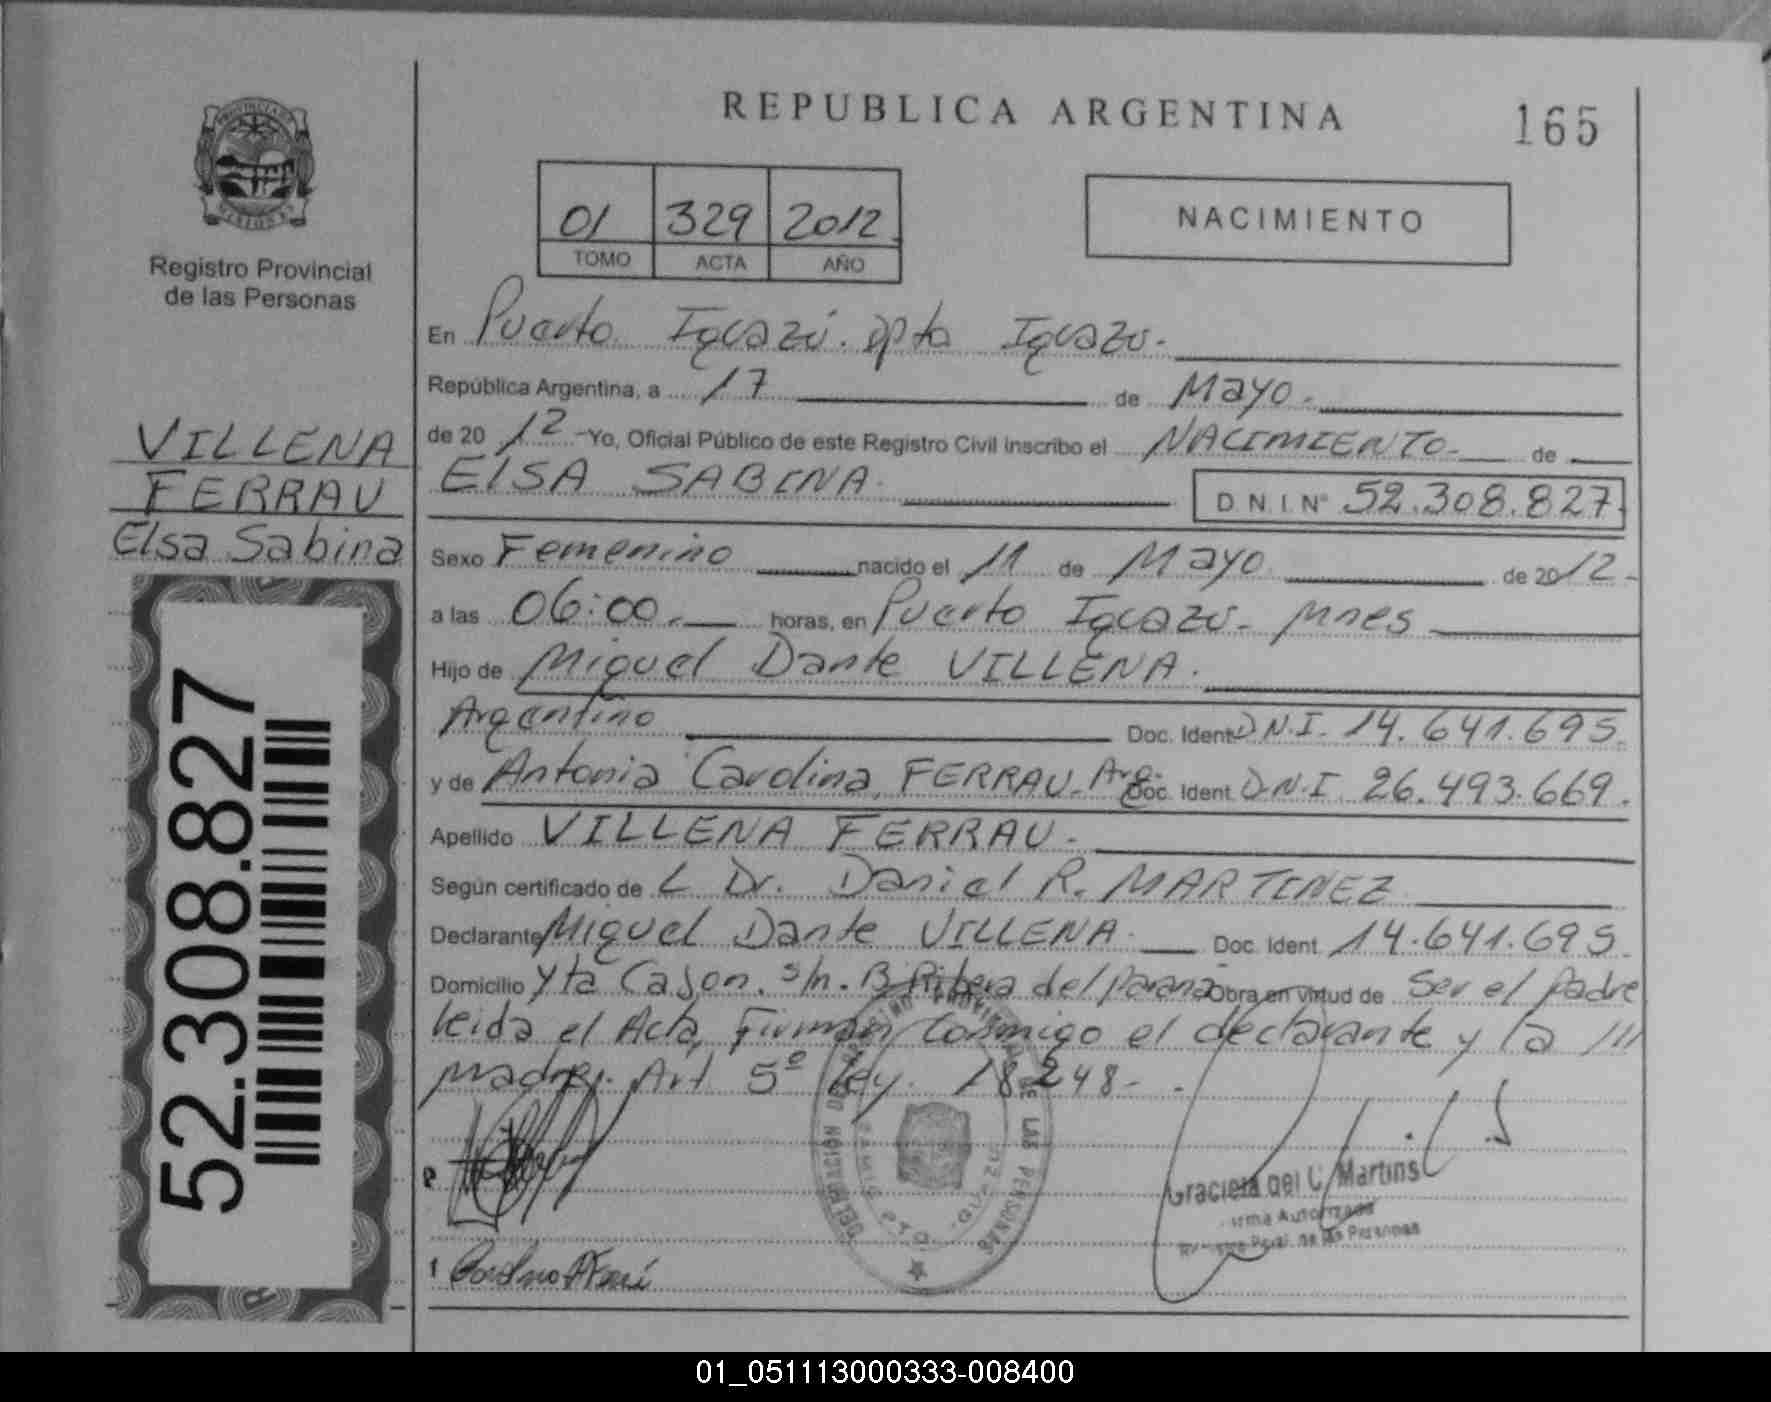 REPUBLICA ARGENTINA
165
Registro Provincial
de las Personas
01 329 2012
TOMO ACTA AÑO
NACIMIENTO
VILLENA
FERRAU
Elsa Sabina
52.308.827
En Puerto Iguazú. Dpto Iguazu.
República Argentina, a 17 de Mayo.
de 20 12 -Yo, Oficial Público de este Registro Civil inscribo el NACIMIENTO de
ElSA SABINA. D.N.I. N° 52.308.827.
Sexo Femenino nacido el 11 de Mayo de 20 12 -
a las 06:00. horas, en Puerto Iguazu- Mnes
Hijo de Miguel Dante VILLENA.
Argentino Doc. Ident. D.N.I. 14.641.695.
y de Antonia Carolina FERRAU. Arg. Doc. Ident. D.N.I 26.493.669.
Apellido VILLENA FERRAU.
Según certificado de L Dr. Daniel R. MARTINEZ
Declarante Miguel Dante VILLENA. Doc. Ident. 14.641.695.
Domicilio Yta Cajon. s/n. B Ribera del parana Obra en virtud de Ser el padre
leida el Acta, Firman Conmigo el declarante y la ///
madre. Art 5º Ley. 18248-.
DE LAS PERSONAS
Graciela del C. Martins
Firma Autorizada
01_051113000333-008400